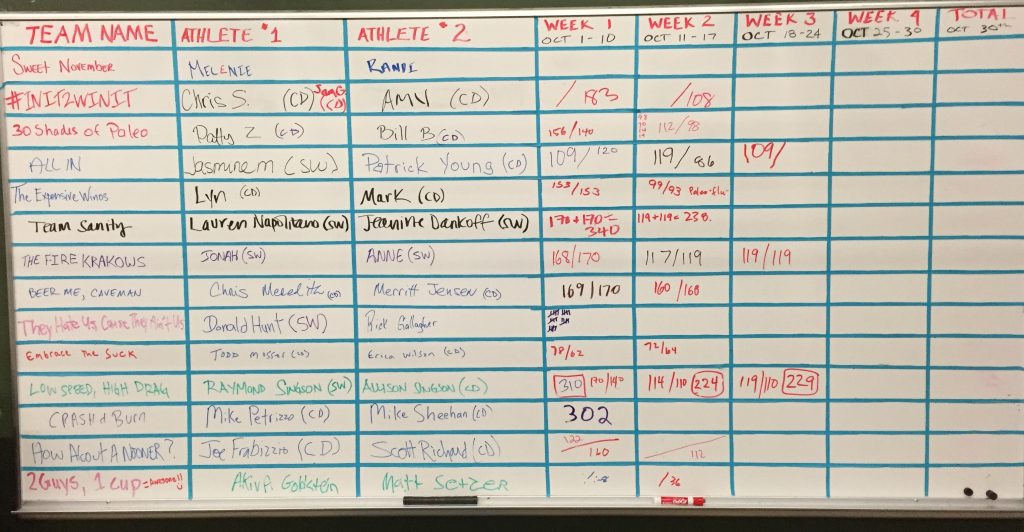 TEAM NAME ATHLETE #1 ATHLETE #2 WEEK 1 WEEK 2 WEEK 3 WEEK 4 TOTAL
OCT 1-10 OCT 11-17 OCT 18-24 OCT 25-30 OCT 30th
Sweet November MELENIE RANDI
#INIT2WINIT Chris S. (CD) Sam G (CD) AMV (CD) /183 /108
30 Shades of Paleo Patty Z (CD) Bill B (CD) 156/140 112/98
ALL IN Jasmine M (SW) Patrick Young (CD) 109/120 119/86 109/
The Expensive Winos Lyn (CD) Mark (CD) 153/153 99/93 Paleo-flu
Team Sanity Lauren Napolitano (SW) Jeanine Dankoff (SW) 170+170= 340 119+119= 238.
THE FIRE KRAKOWS JONAH (SW) ANNE (SW) 168/170 117/119 119/119
BEER ME, CAVEMAN Chris Meredith (CD) Merritt Jensen (CD) 169/170 160/160
They Hate Us Cause They Ain't Us Donald Hunt (SW) Rick Gallagher
Embrace the Suck TODD (CD) Erica Wilson (CD) 78/62 72/64
LOW SPEED, HIGH DRAG RAYMOND SINGSON (SW) ALLISON SINGSON (CD) 310 170/140 114/110 224 119/110 229
CRASH & Burn Mike Petrizzo (CD) Mike Sheehan (CD) 302
HOW ABOUT A NOONER? Joe Frabizzio (CD) Scott Richard (CD) 122/160 /112
2 Guys, 1 Cup =Awesome!! Akiva Goldstein Matt Setzer /36